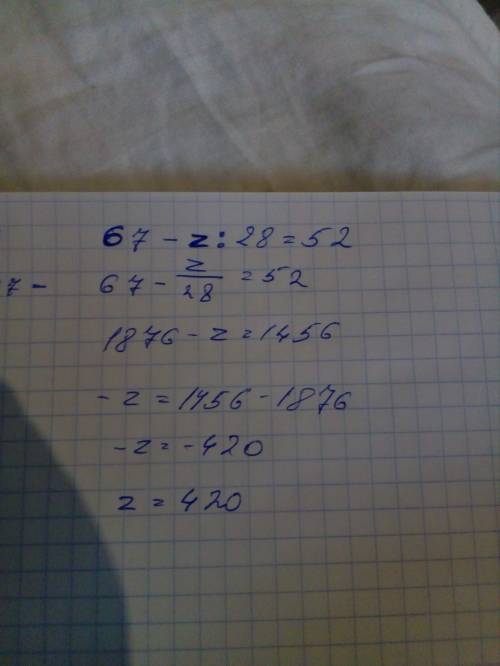 67 - z : 28 = 52
7 - 67 - z/28 = 52
1876 - z = 1456
- z = 1456 - 1876
- z = - 420
z = 420